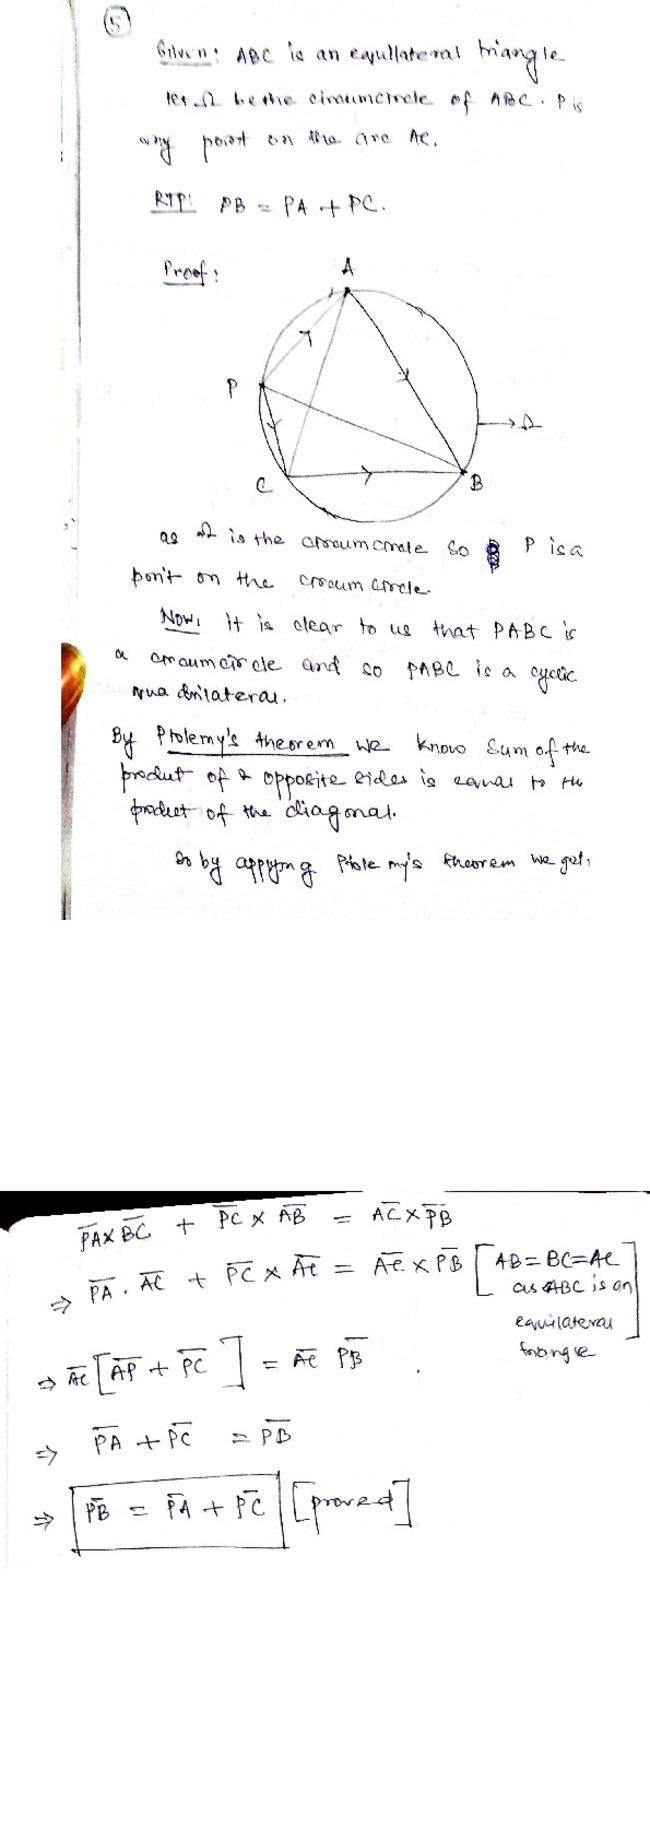 5
Given: ABC is an equllateral triangle
let Ω be the circumcircle of ABC. P is
any point on the arc AC.
RTP: PB = PA + PC.
Proof:
A
P
Ω
C
B
as Ω is the circumcircle so P is a
point on the circumcircle.
Now, it is clear to us that PABC is
a circumcircle and so PABC is a cyclic
quadrilateral.
By Ptolemy's theorem we know sum of the
produt of 2 opposite sides is equal to the
product of the diagonal.
So by applying Ptolemy's theorem we get,
P̅A̅ × B̅C̅ + P̅C̅ × A̅B̅ = A̅C̅ × P̅B̅
⇒ P̅A̅ . A̅C̅ + P̅C̅ × A̅C̅ = A̅C̅ × P̅B̅ [AB = BC = AC
as ABC is an
equilateral
triangle]
⇒ A̅C̅ [A̅P̅ + P̅C̅] = A̅C̅ P̅B̅
⇒ P̅A̅ + P̅C̅ = P̅B̅
⇒ P̅B̅ = P̅A̅ + P̅C̅ [proved]